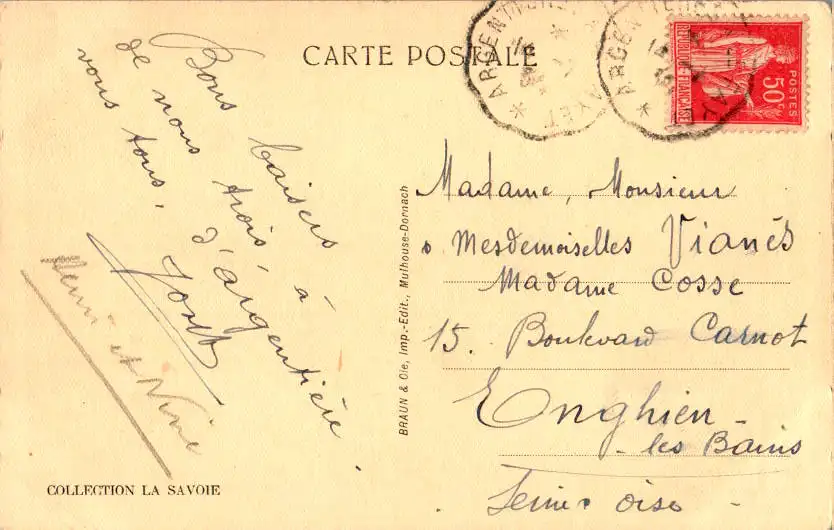 CARTE POSTALE
Bons baisers à
de nous trois, d'argentière.
vous tous.
Henri et Ninie
COLLECTION LA SAVOIE
BRAUN & Cie, Imp.-Edit., Mulhouse-Dornach
ARGENTIERE
ARGENTIERE
REPUBLIQUE-FRANÇAISE
50c
POSTES
Madame, Monsieur
Mesdemoiselles Vianès
Madame Cosse
15. Boulevard Carnot
Enghien -
- les Bains
Seine & Oise -